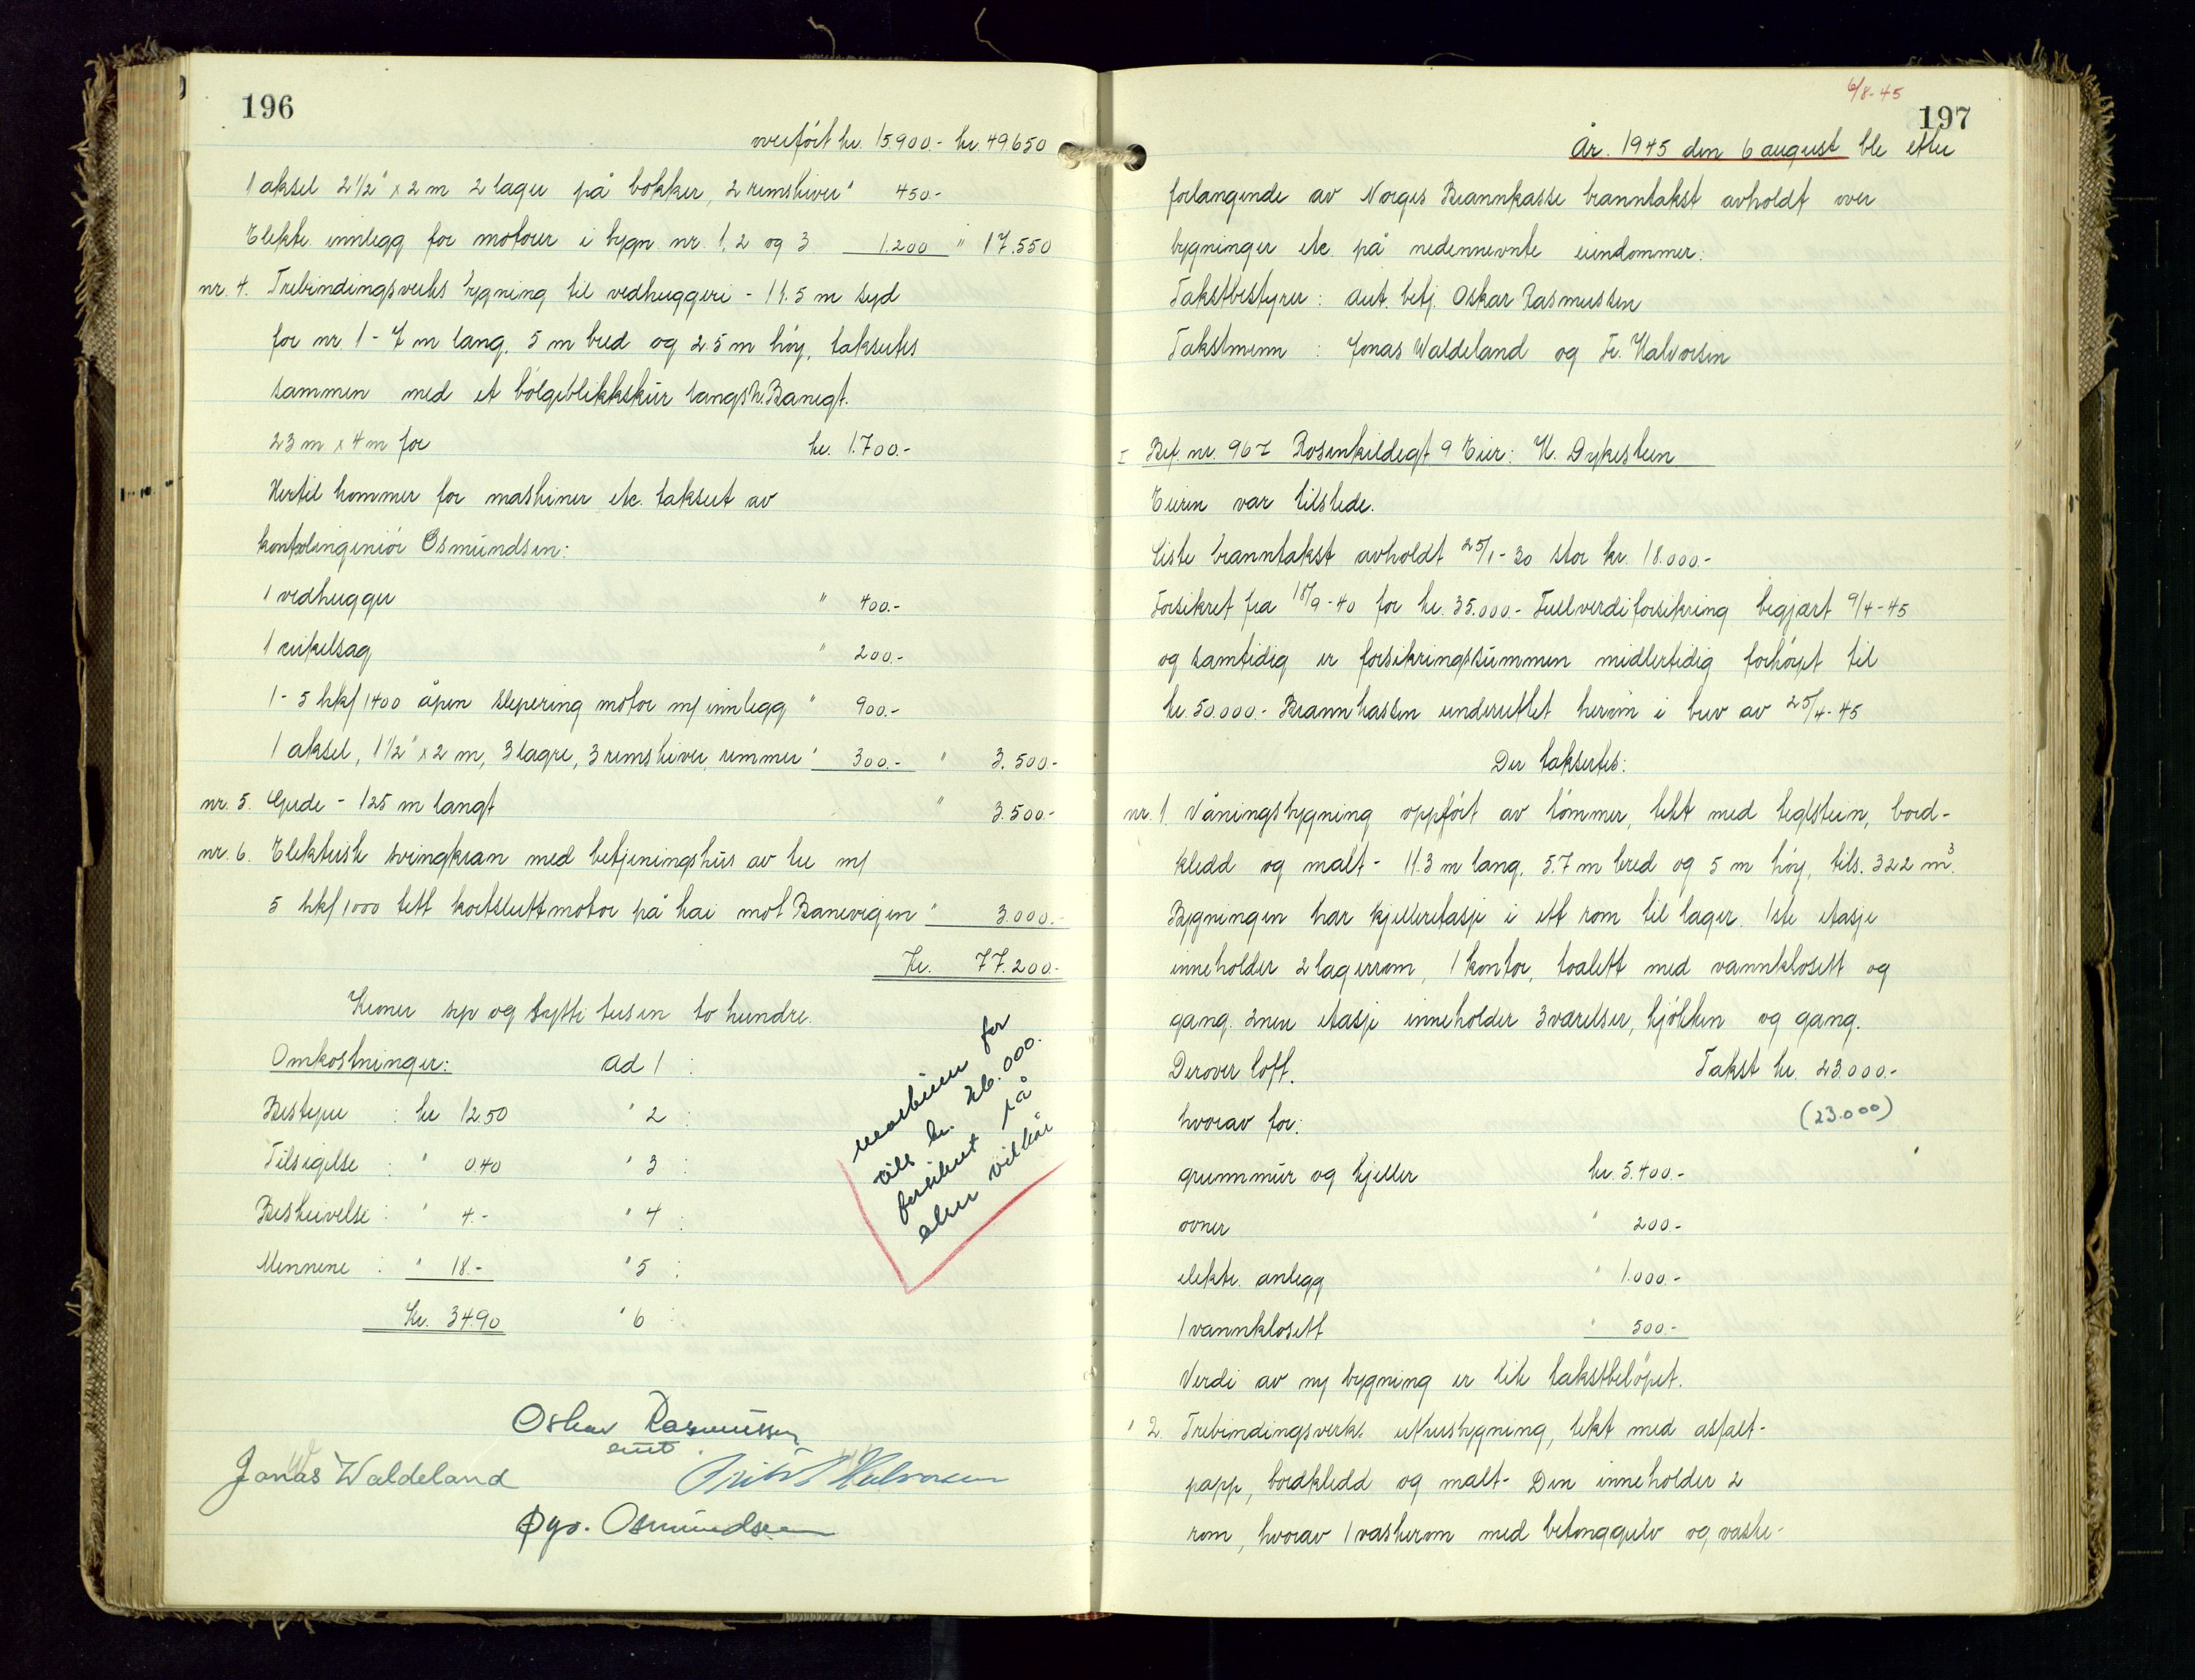 196
overført kr. 15.900.- kr. 49.650
1 aksel 2 1/2" x 2 m 2 lager på bokker, 2 remskiver " 450.-
Elektr. innlegg for motorer i bygn. nr. 1, 2 og 3 1.200 " 17.550
nr. 4. Trebindingsverks bygning til vedhuggeri - 11.5 m syd
for nr. 1 - 7 m lang, 5 m bred og 2.5 m høy, takseres
sammen med et bølgeblikkskur langs h. Banegt.
23 m x 4 m for kr. 1.700.-
Hertil kommer for maskiner etc. taksert av
kontrolingeniør Osmundsen:
1 vedhugger " 400.-
1 sirkelsag " 200.-
1 - 5 hkf 1400 åpen slepering motor m/ innlegg " 900.-
1 aksel, 1 1/2" x 2 m, 3 lagre, 3 remskiver, remmer " 300.- " 3.500.-
nr. 5. Gjerde - 125 m langt " 3.500.-
nr. 6. Elektrisk svingkran med betjeningshus av tre m/
5 hkf 1000 tett kortsluttmotor på kai mot Banevigen " 3.000.-
Kr. 77.200.-
Kroner syv og sytti tusen to hundre.
Omkostninger: ad 1 :
Bestyrer : kr 12.50 " 2 :
Tilsigelse : " 0.40 " 3 :
Beskrivelse : " 4.- " 4 :
Mennene : " 18.- " 5 :
Kr. 34.90 " 6 :
maskiner for
tils kr. 26.000.
forsikret på
alm vilkår
Oskar Rasmussen
aut.
Jonas Waldeland Halvorsen
Osmundsen
6/8-45
197
År. 1945 den 6 august ble etter
forlangende av Norges Brannkasse branntakst avholdt over
bygninger etc. på nedennevnte eiendommer:
Takstbestyrer : aut. betj. Oskar Rasmussen
Takstmenn : Jonas Waldeland og Fr. Halvorsen
I Bef. nr. 967 Rosenkildegt 9 Eier: H. Dykesteen
Eieren var tilstede.
Siste branntakst avholdt 25/1-30 stor kr. 18.000.-
Forsikret fra 18/9-40 for kr. 35.000.- Fullverdiforsikring begjært 9/4-45
og samtidig er forsikringssummen midlertidig forhøyet til
kr. 50.000.- Brannkassen underrettet herom i brev av 25/4-45
Der takseres:
nr. 1. Våningsbygning oppført av tømmer, tekt med teglsteen, bord-
kledd og malt - 11.3 m lang, 5.7 m bred og 5 m høy, tils. 322 m³.
Bygningen har kjelleretasje i ett rom til lager. 1ste etasje
inneholder 2 lagerrom, 1 kontor, toalett med vannklosett og
gang. 2nen etasje inneholder 3 værelser, kjøkken og gang.
Derover loft. Takst kr. 23.000.-
hvorav for: (23.000)
grunnmur og kjeller kr. 5.400.-
ovner " 200.-
elektr. anlegg " 1.000.-
1 vannklosett " 500.-
Verdi av ny bygning er lik takstbeløpet.
" 2. Trebindingsverks uthusbygning, tekt med asfalt-
papp, bordkledd og malt - Den inneholder 2
rom, hvorav 1 vaskerom med betonggulv og vaske-